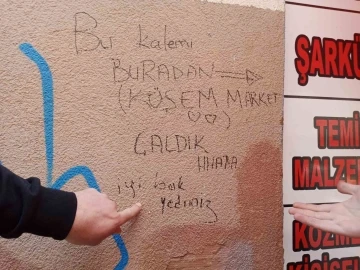 Bu kalemi
BURADAN
(KÖŞEM MARKET
)
ÇALDIK
iyi bok
yediniz
ŞARKÜ
TEMİ
MALZE
KOZM
KİŞİSE